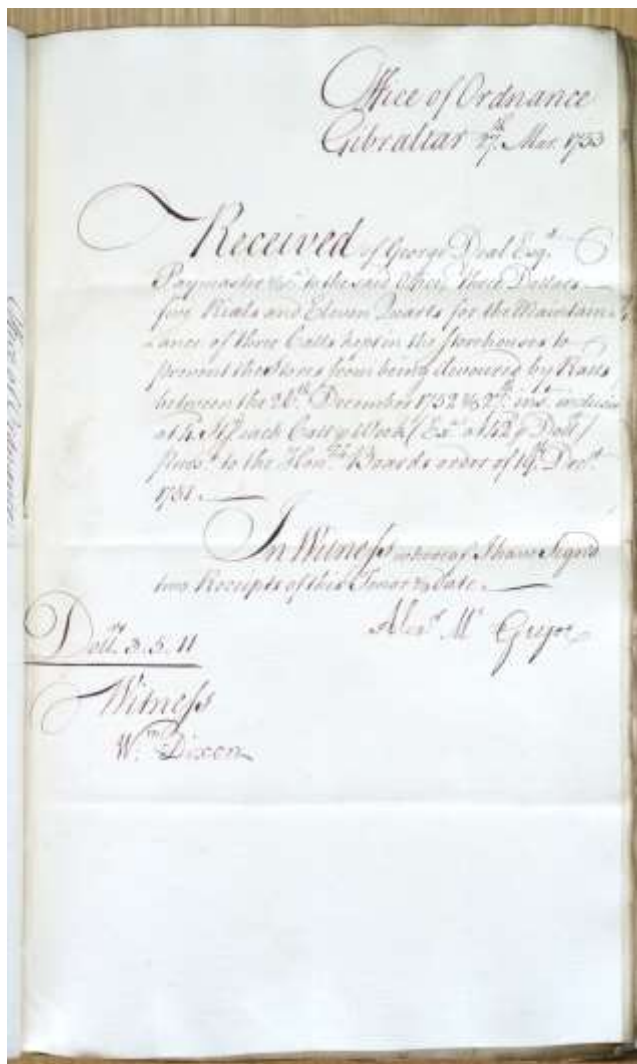 Office of Ordnance
Gibraltar 27th Mar. 1753
Received of George Deal Esqr.
Paymaster &c. to the said Office, three Dollars
five Rials and Eleven Quarts for the Maintain-
ance of three Catts kept in the Storehouses to
prevent the Stores from being devoured by Ratts
between the 26th December 1752 & 27th inst. inclusive
at each Catt p Week (Exa. at 42 p Dollr)
to the Honble Boards order of 19th Decr.
1751.
In Witness whereof I have Signed
two Receipts of this Tenor & Date.
Alexr. Mc Gregor
Dollrs 3.5.11
Witness
Wm Dixon